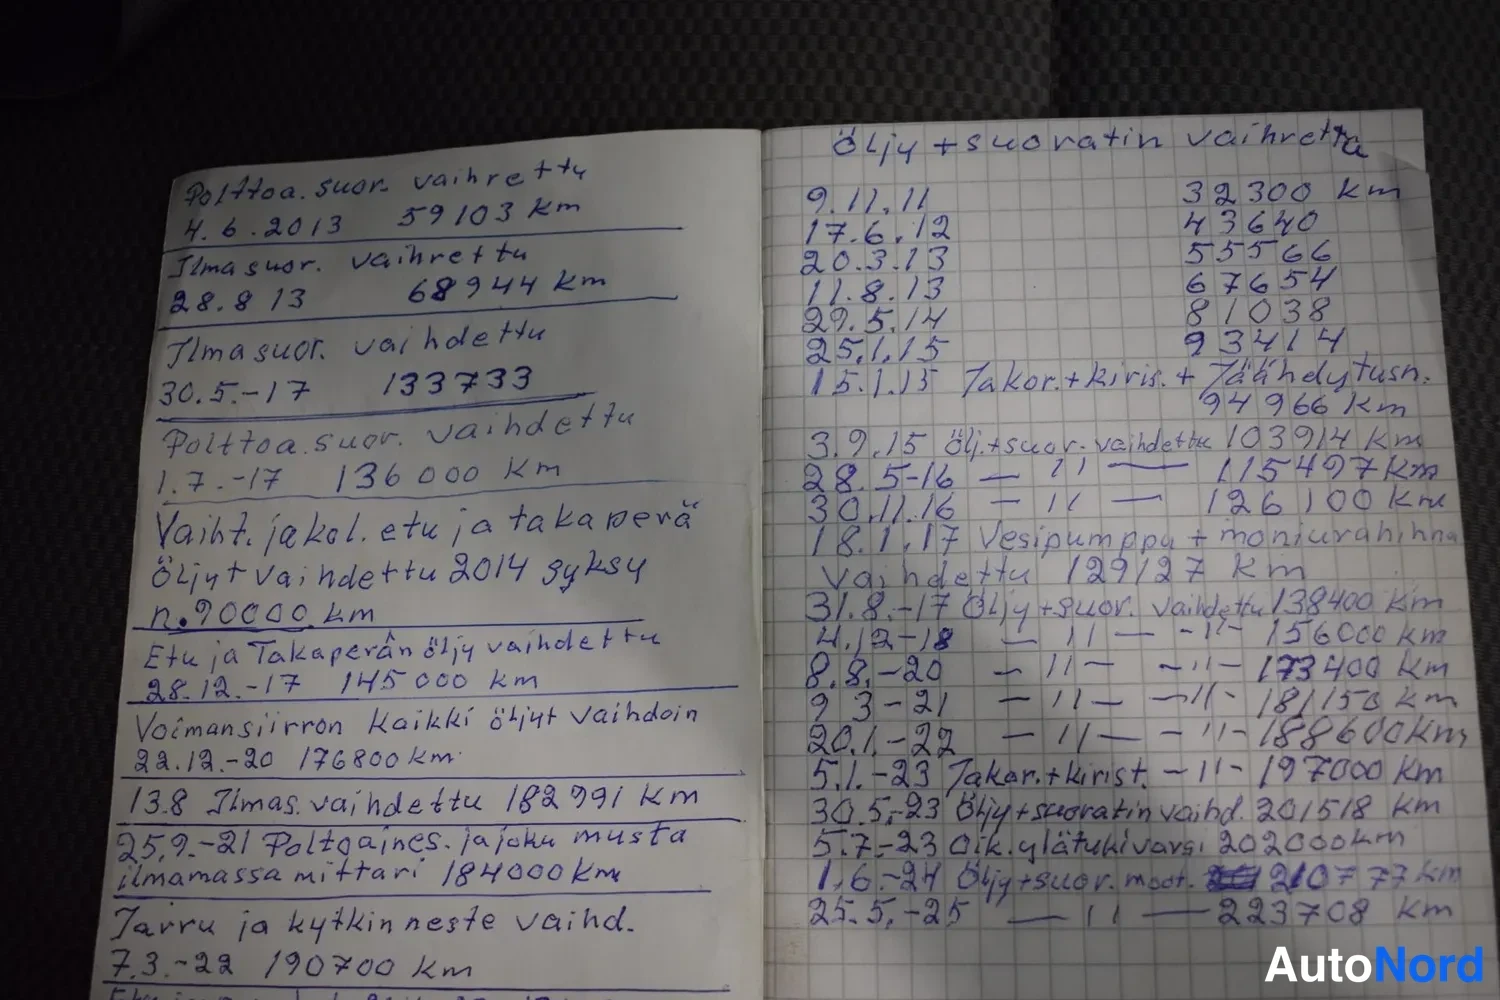 Polttoa.suor. vaihrettu
4.6.2013 59103 km
Ilmasuor. vaihrettu
28.8 13 68944 km
Ilmasuor. vaihdettu
30.5.-17 133733
Polttoa.suor. vaihdettu
1.7.-17 136000 km
Vaiht. jakol. etu ja takaperä
Öljyt vaihdettu 2014 syksy
n.90000 km
Etu ja Takaperän öljy vaihdettu
28.12.-17 145000 km
Voimansiirron kaikki öljyt vaihdoin
22.12.-20 176800 km
13.8 Ilmas. vaihdettu 182991 km
25.9.-21 Poltoaines. ja joku musta
ilmamassa mittari 184000 km
Jarru ja kytkinneste vaihd.
7.3.-22 190700 km
Öljy + suoratin vaihrettu
9.11.11 32300 km
17.6.12 43640
20.3.13 55566
11.8.13 67654
29.5.14 81038
25.1.15 93414
15.1.15 Jakor.+kiris.+Jäähdytysn.
94966 km
3.9.15 Ölj.+suor. vaihdettu 103914 km
28.5-16 — 11 — 115497 km
30.11.16 — 11 — 126100 km
18.1.17 Vesipumppu + moniurahihna
vaihdettu 129127 km
31.8.-17 Öljy+suor. vaihdettu 138400 km
4.12-18 — 11 — -11- 156000 km
8.8.-20 — 11 — -11- 173400 km
9 3-21 — 11 — -11- 181150 km
20.1.-22 — 11 — -11- 188600 km
5.1.-23 Jakor.+kirist. -11- 197000 km
30.5.-23 Öljy+suoratin vaihd. 201518 km
5.7.-23 Oik.ylätukivarsi 202000 km
1.6.-24 Öljy+suor. moot. 210777 km
25.5.-25 — 11 — 223708 km
AutoNord